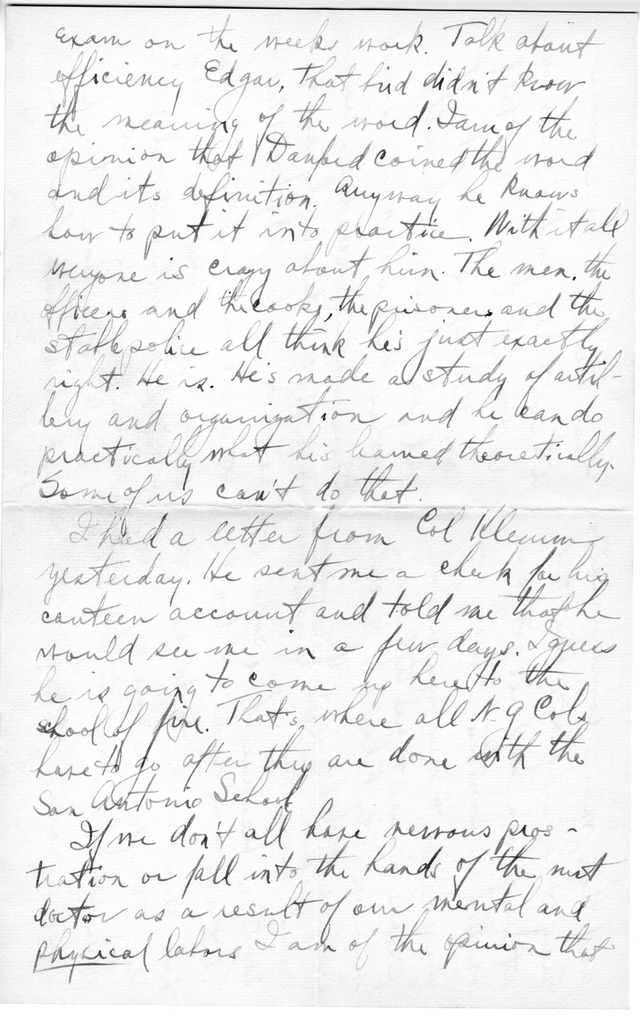 exam on the weeks work. Talk about
efficiency Edgar, that bird didn't know
the meaning of the word. I am of the
opinion that Danford coined the word
and its definition. Anyway he knows
how to put it into practice. With it all
everyone is crazy about him. The men, the
officers and the cooks, the prisoners and the
stable police all think he's just exactly
right. He is. He's made a study of artil-
lery and organization and he can do
practically what his learned theoretically.
Some of us can't do that.
I had a letter from Col Klemm
yesterday. He sent me a check for his
canteen account and told me that he
would see me in a few days. I guess
he is going to come up here to the
school of fire. That's where all N.G Cols
have to go after they are done with the
San Antonio School
If we don't all have nervous pros-
tration or fall into the hands of the nut
doctor as a result of our mental and
physical labors I am of the opinion that